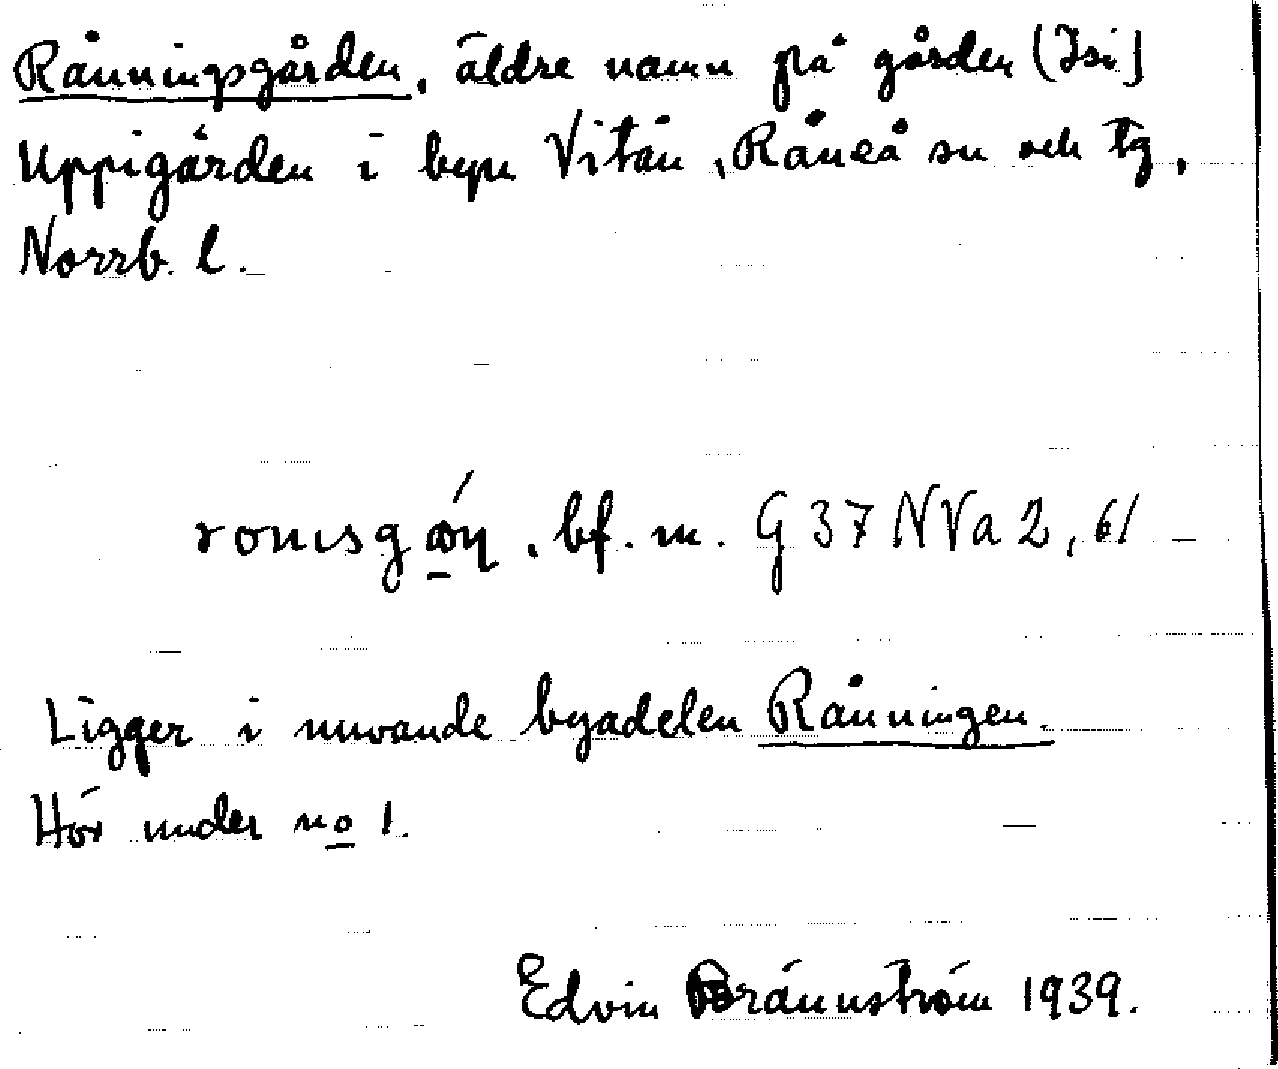 Råningsgården, äldre namn på gården (Isi)
Uppigården i byn Vitån, Råneå sn och tg,
Norrb. l.
bf. m. G 37 N Va 2, 61
Ligger i nuvande byadelen Råningen.
Hör under no 1.
Edvin Brännström 1939.